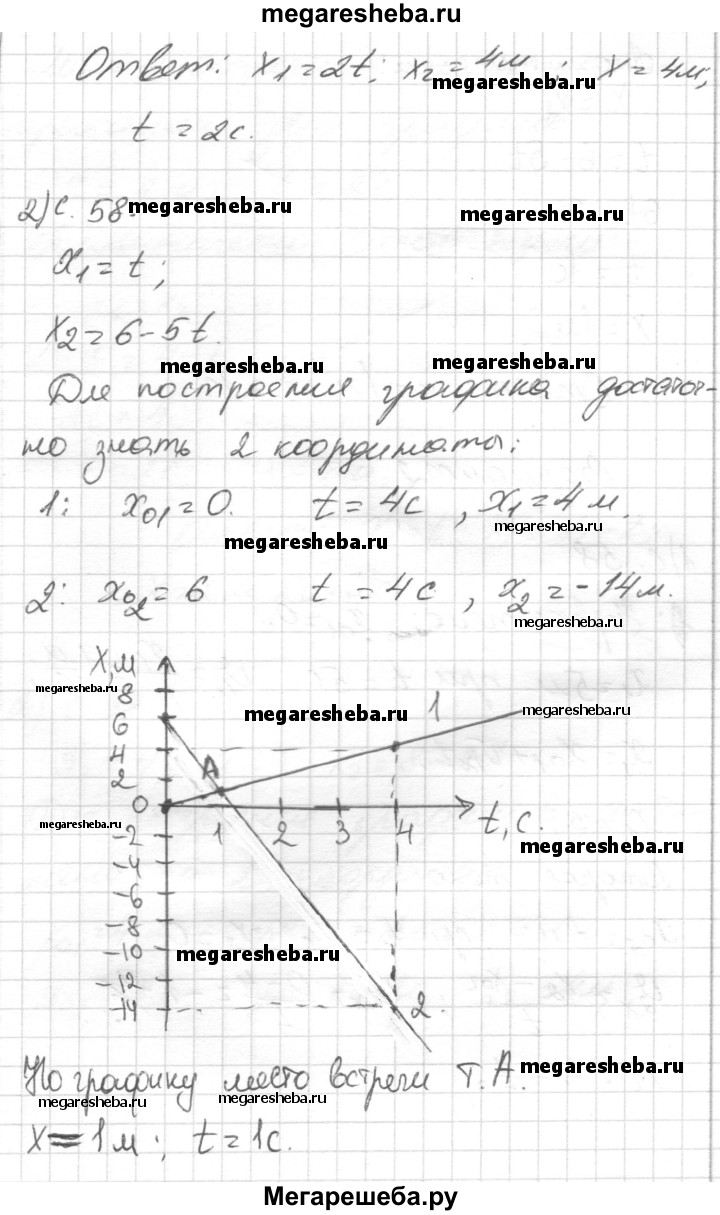 megaresheba.ru
Ответ: x₁=2t; x₂=4м; x=4м;
megaresheba.ru
t=2с.
2) с. 58. megaresheba.ru
megaresheba.ru
x₁=t;
x₂=6-5t.
megaresheba.ru megaresheba.ru
Для построения графика достаточ-
но знать 2 координаты:
1: x₀₁=0. t=4с, x₁=4м.
megaresheba.ru megaresheba.ru
2: x₀₂=6 t=4с, x₂=-14м.
megaresheba.ru
X,м
megaresheba.ru 8
megaresheba.ru 1 megaresheba.ru
6
4
2 A
0
megaresheba.ru 1 2 3 4 t,с.
-2 megaresheba.ru
-4
-6
-8
-10 megaresheba.ru
-12
-14 2.
По графику место встречи т.А.
megaresheba.ru
megaresheba.ru megaresheba.ru
X=1м; t=1с.
Мегарешеба.ру